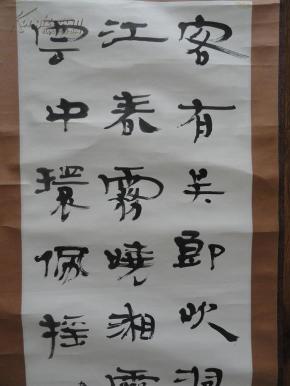 客有吳郎吹洞
江春霧曉湘靈
雲中環佩搖